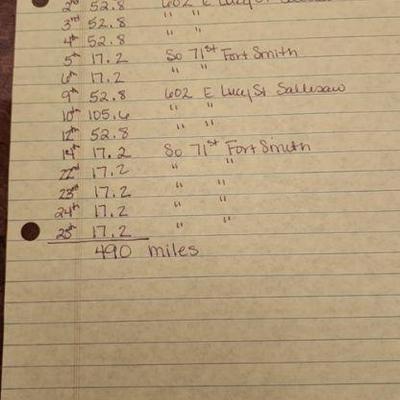 2nd 52.8 602 E Lucy St
3rd 52.8 " "
4th 52.8 " "
5th 17.2 So 71st Fort Smith
6th 17.2 " "
9th 52.8 602 E Lucy St Sallisaw
10th 105.6 " "
12th 52.8 " "
19th 17.2 So 71st Fort Smith
22nd 17.2 " "
23rd 17.2 " "
24th 17.2 " "
25th 17.2 " "
490 miles